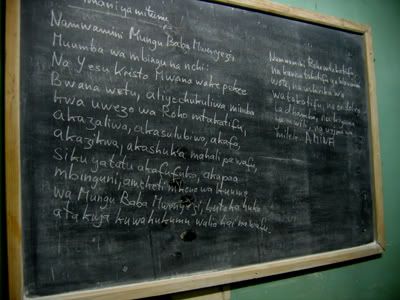 Imani ya mitume
Namwamini Mungu Baba Mwenyezi
Muumba wa mbingu na nchi:
Na Yesu Kristo Mwana wake pekee
Bwana wetu, aliyechukuliwa mimba
kwa uwezo wa Roho mtakatifu,
akazaliwa, akasulubiwo, akafo,
akazikwa, akashuka mahali pa wafo,
siku ya tatu akafufuko, akapaa
mbinguni, ameketi mkono wa kuume
wa Mungu Baba Mwenyezi; kutoka huko
atakuja kuwahukumu walio hai na wafu.
Namwamini Roho mtakatifu,
na kanisa takatifu
wote, na ushirika wa
watakatifu, na ondoleo
la dhambi, na
na uzima
milele. AMINA